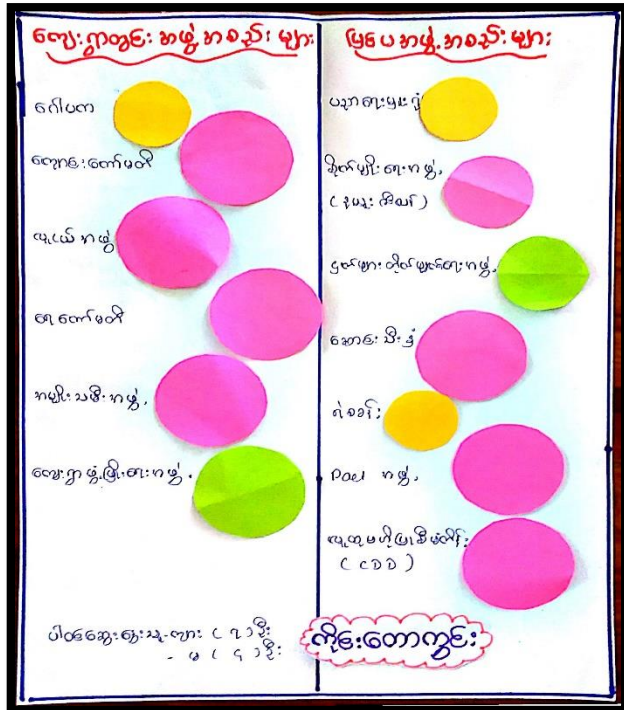 ကျေးရွာတွင်း အဖွဲ့အစည်းများ
ဂေါပက
ကျောင်းကော်မတီ
လူငယ်အဖွဲ့
ရေကော်မတီ
အမျိုးသမီးအဖွဲ့
ကျေးရွာဖွံ့ဖြိုးရေးအဖွဲ့
ပါဝင်ဆွေးနွေးသူ-ကျား (၇)ဦး
- မ (၄)ဦး
ပြင်ပအဖွဲ့အစည်းများ
ပညာရေးမှူးရုံး
စိုက်ပျိုးရေးအဖွဲ့
ငှက်ဖျားတိုက်ဖျက်ရေးအဖွဲ့
ဆောင်းသီးနှံ
ရဲစခန်း
Pact အဖွဲ့
လူထုဗဟိုပြုစီမံကိန်း
(CDD)
ကိုင်းတောကွင်း